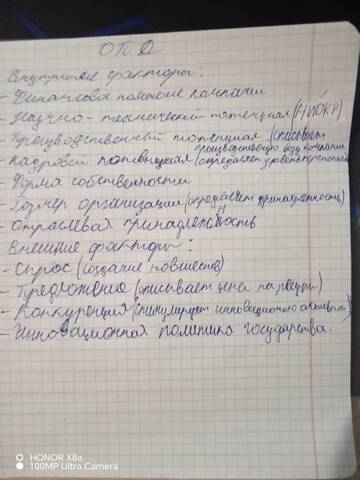 ОПД
Внутренние факторы:
- Финансовое положение компании
- Научно-технический потенциал (НИОКР)
- Производственный потенциал (описывает
производственную базу компании
Кадровый потенциал (определяет уровень
Форма собственности
- Размер организации (определяет принадлежность)
- Отраслевая принадлежность
Внешние факторы:
- Спрос (создание новшеств)
- Предложение (описывает цена на ресурсы)
- Конкуренция (стимулирует инновационную активность)
- Инновационная политика государства.
HONOR X8a
100MP Ultra Camera